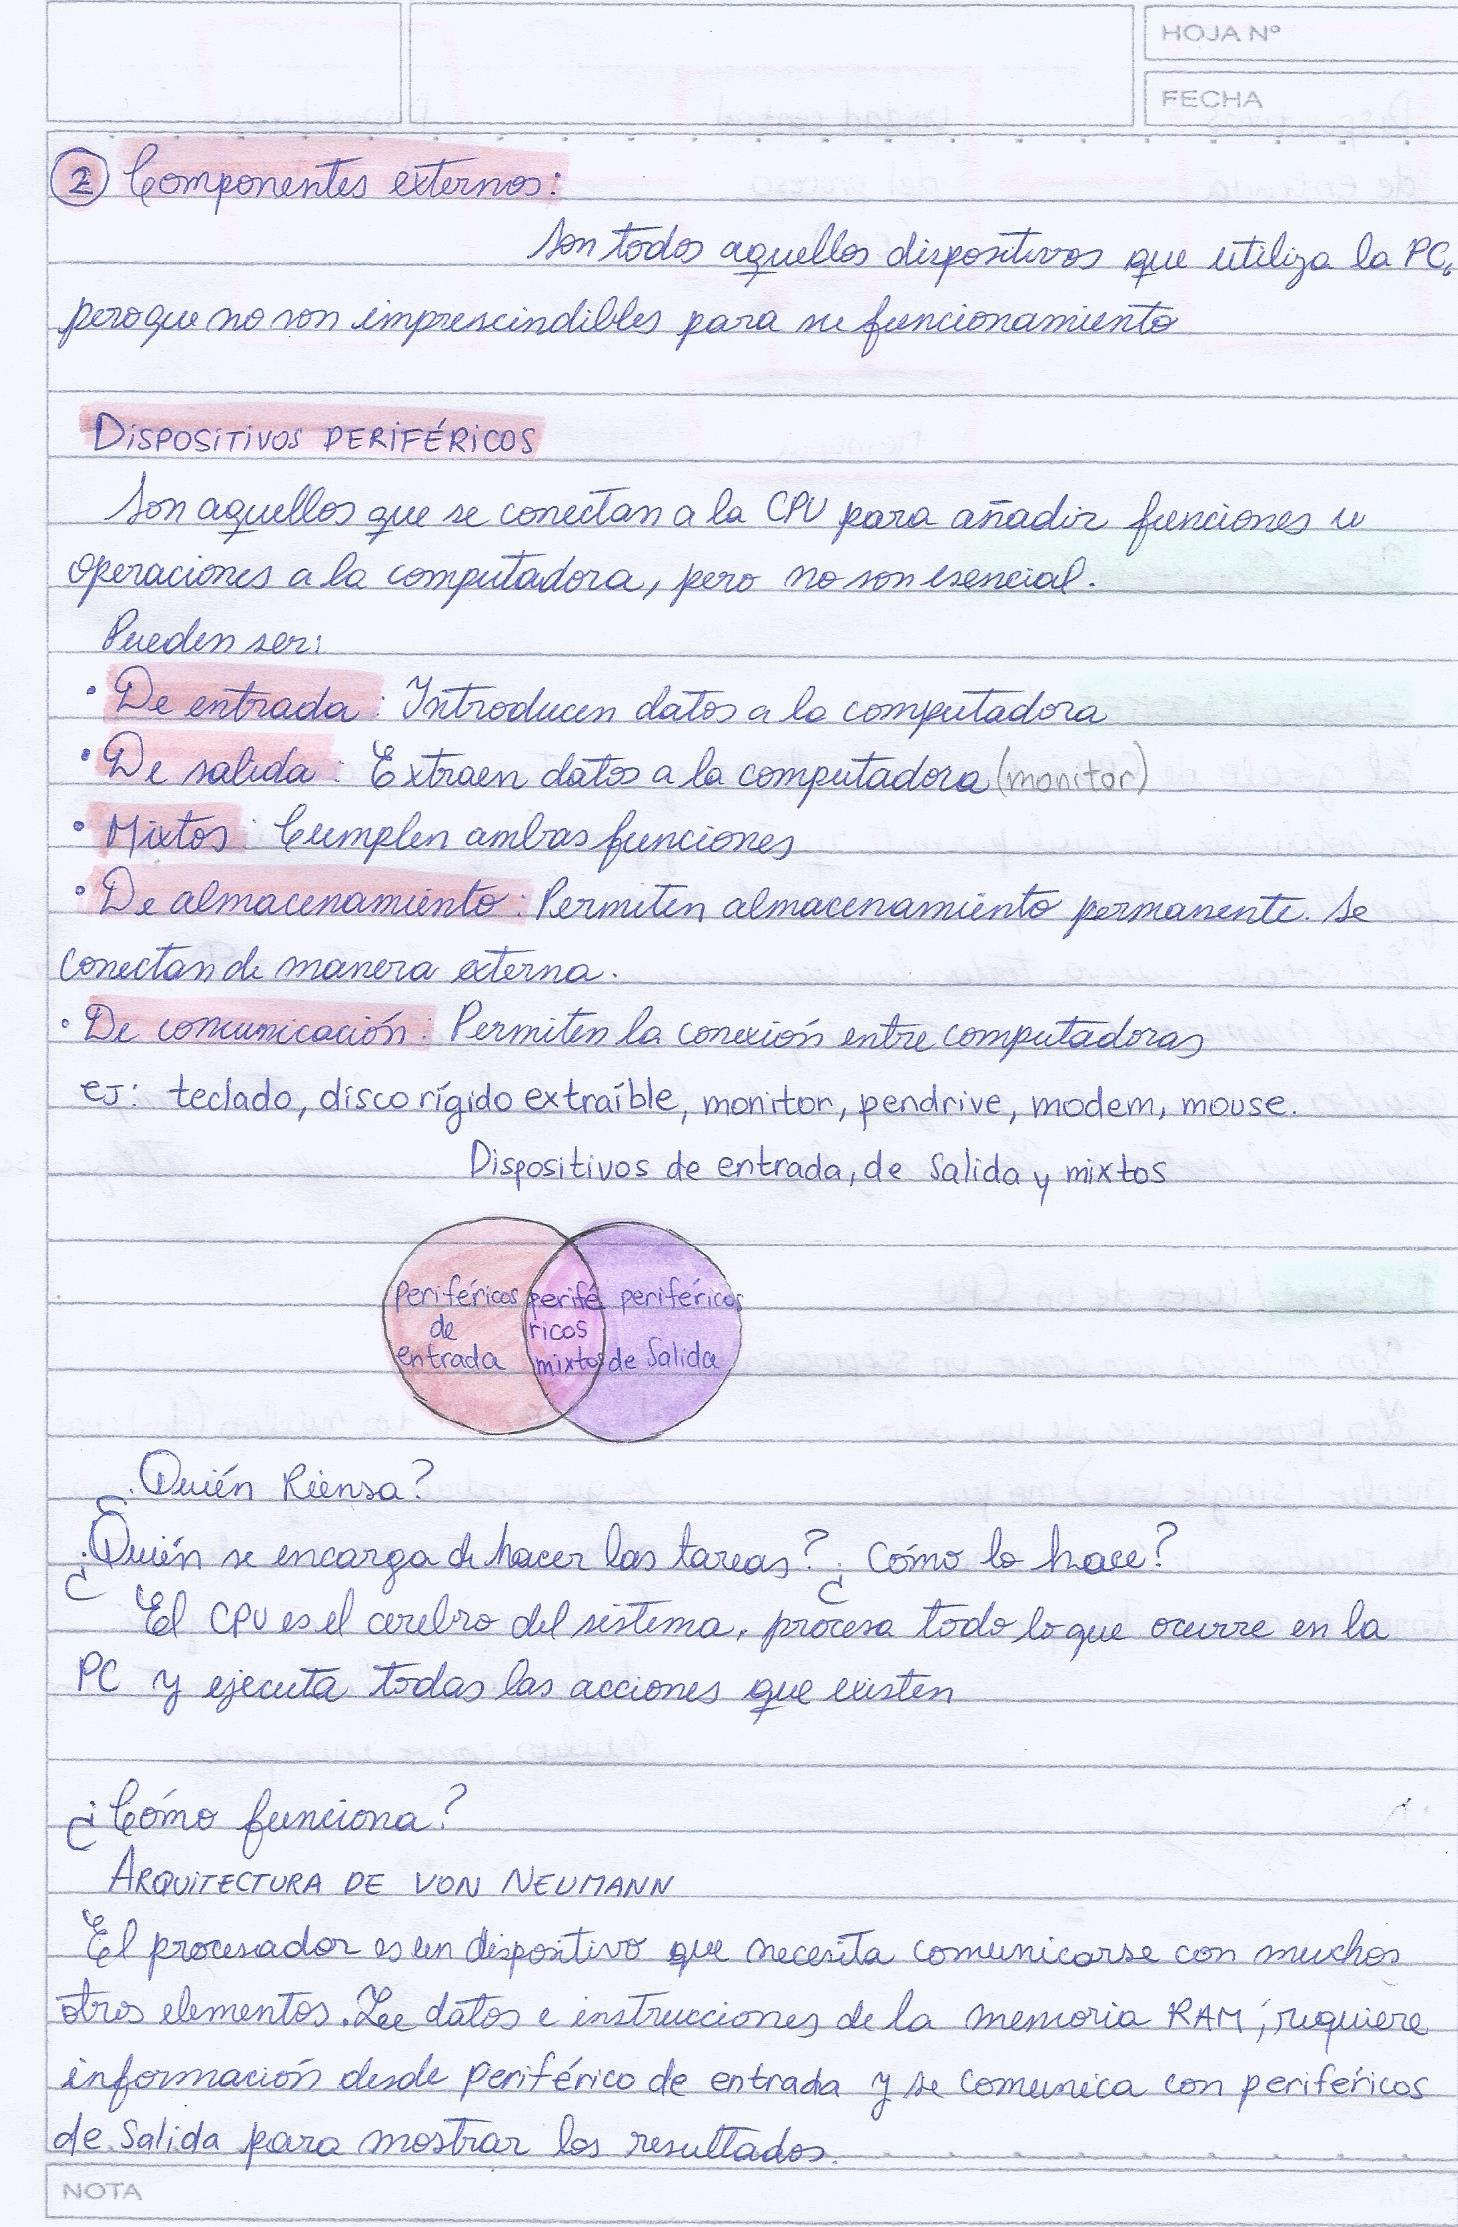 HOJA Nº
FECHA
② Componentes externos:
Son todos aquellos dispositivos que utiliza la PC,
pero que no son imprescindibles para su funcionamiento
DISPOSITIVOS PERIFÉRICOS
Son aquellos que se conectan a la CPU para añadir funciones u
operaciones a la computadora, pero no son esencial.
Pueden ser:
• De entrada: Introducen datos a la computadora
• De salida: Extraen datos a la computadora (monitor)
• Mixtos: Cumplen ambas funciones
• De almacenamiento: Permiten almacenamiento permanente. Se
conectan de manera externa.
• De comunicación: Permiten la conexión entre computadoras
ej: teclado, disco rígido extraíble, monitor, pendrive, modem, mouse.
Dispositivos de entrada, de Salida y mixtos
periféricos
de
entrada
perifé
ricos
mixtos
periféricos
de Salida
¿Quién Piensa?
¿Quién se encarga de hacer las tareas? ¿Cómo lo hace?
El CPU es el cerebro del sistema, procesa todo lo que ocurre en la
PC y ejecuta todas las acciones que existen
¿Cómo funciona?
ARQUITECTURA DE VON NEUMANN
El procesador es un dispositivo que necesita comunicarse con muchos
otros elementos. Lee datos e instrucciones de la memoria RAM; requiere
información desde periférico de entrada y se comunica con periféricos
de Salida para mostrar los resultados.
NOTA